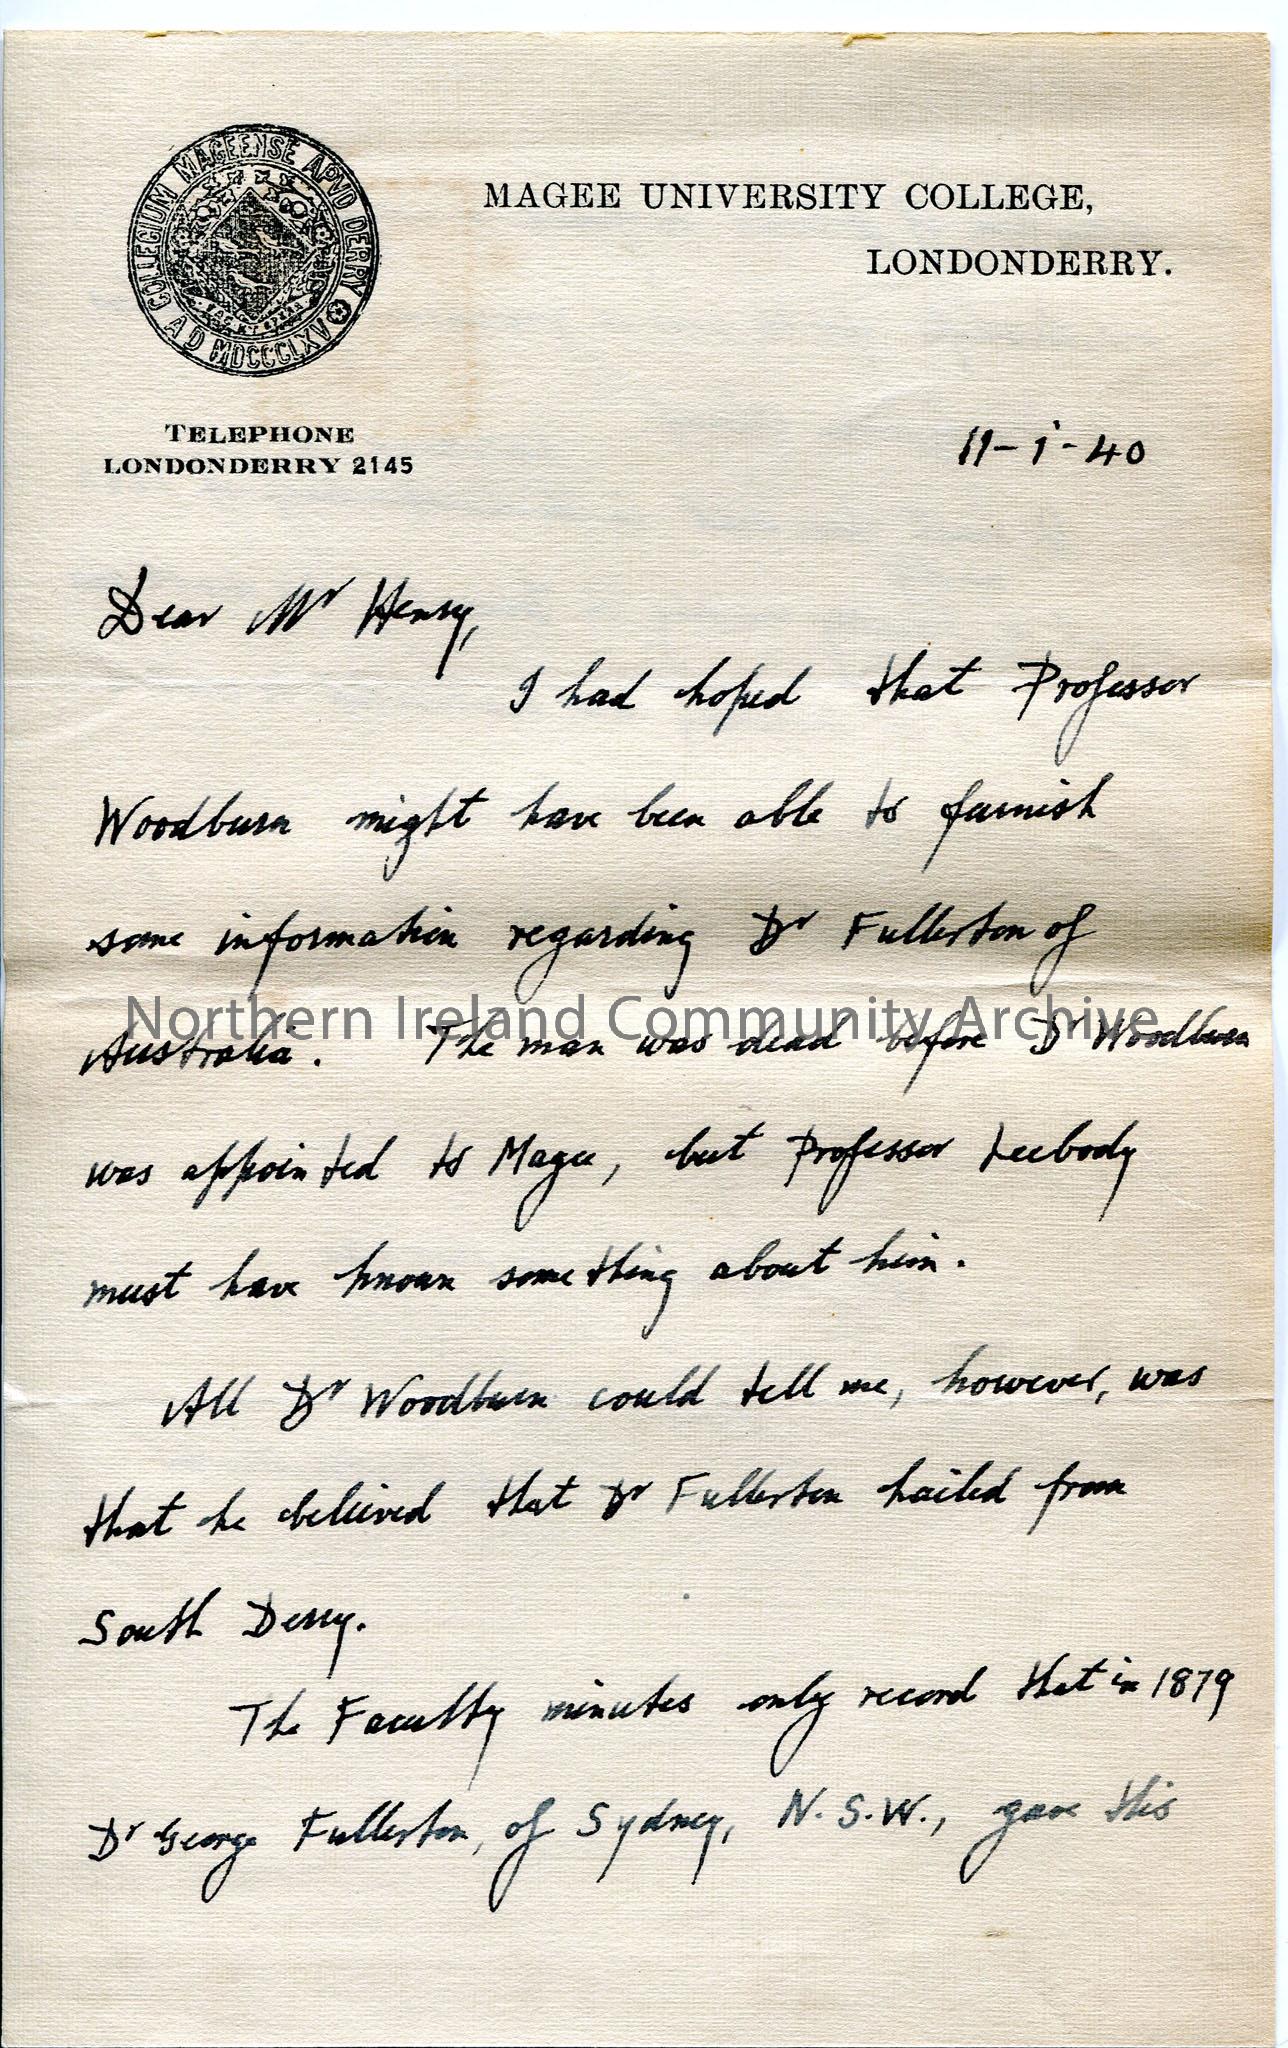 COLLEGIUM MAGEENSE APVD DERRY
AD MDCCCLXV
MAGEE UNIVERSITY COLLEGE,
LONDONDERRY.
TELEPHONE
LONDONDERRY 2145
11-i-40
Dear Mr Henry,
I had hoped that Professor
Woodburn might have been able to furnish
some information regarding Dr Fullerton of
Northern Ireland Community Archive
Australia. The man was dead before Dr Woodburn
was appointed to Magee, but Professor Leebody
must have known something about him.
All Dr Woodburn could tell me, however, was
that he believed that Dr Fullerton hailed from
South Derry.
The Faculty minutes only record that in 1879
Dr George Fullerton, of Sydney, N.S.W., gave this